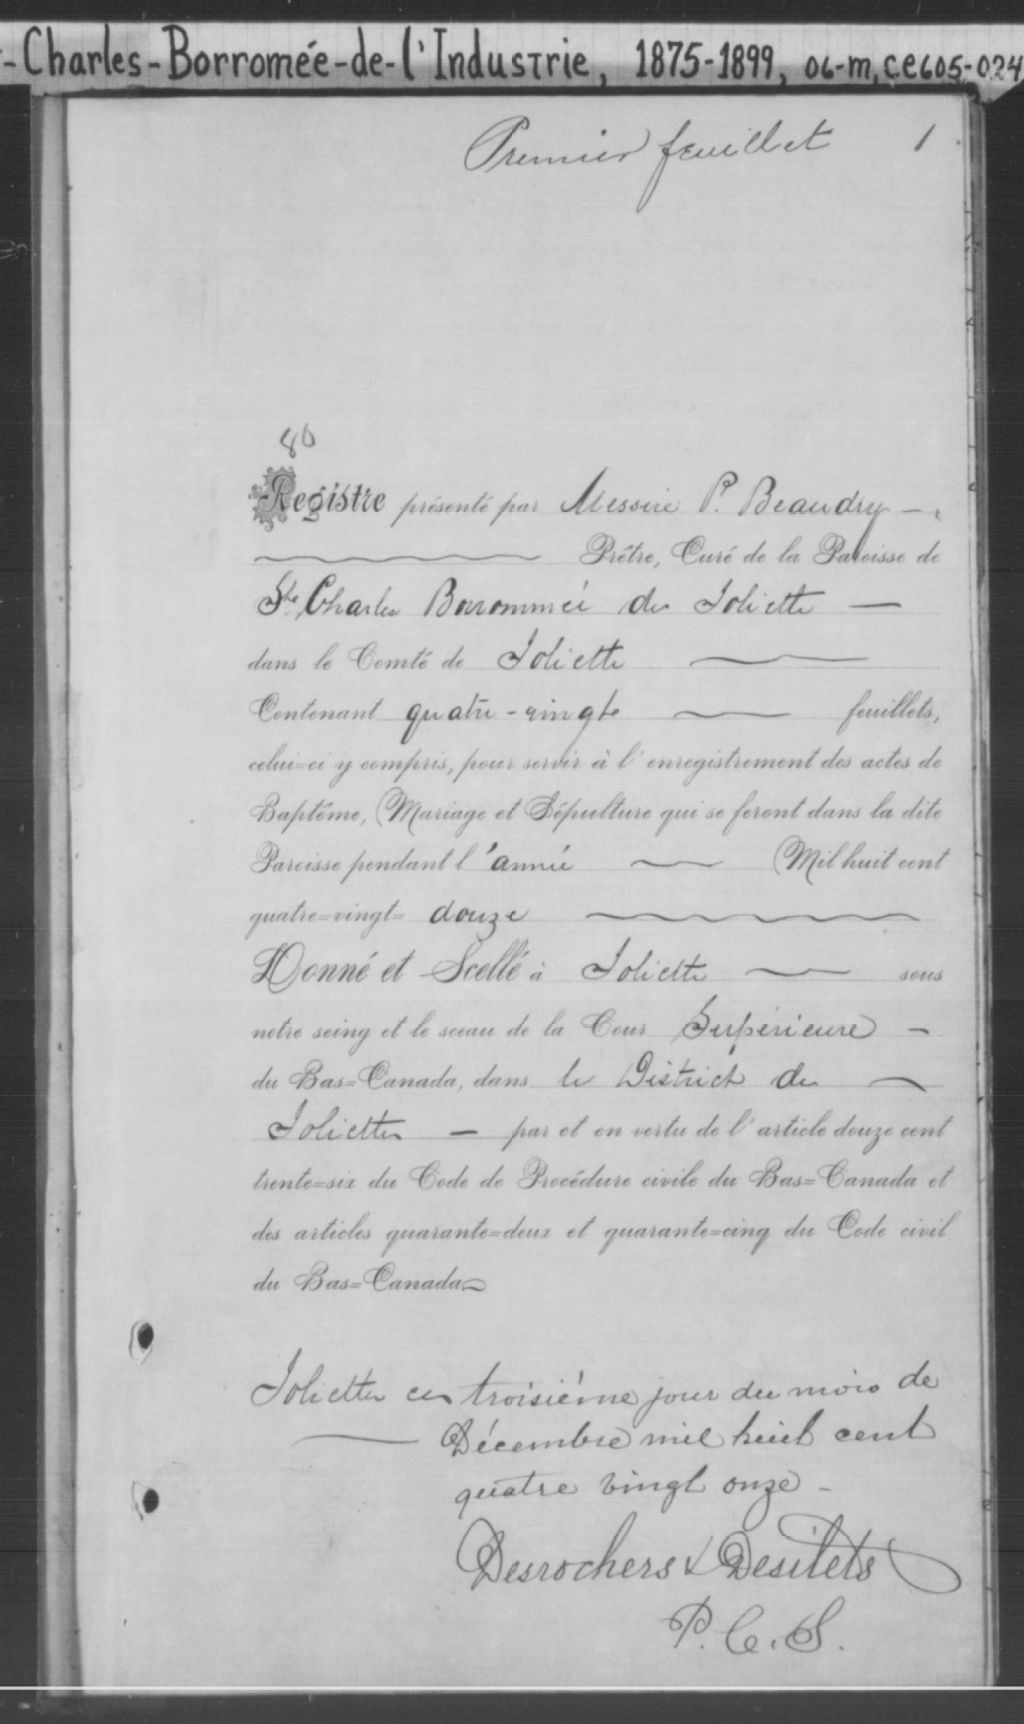 -Charles-Borromée-de-l'Industrie, 1875-1899, 06-m, ce605-024
Premier feuillet 1
80
Registre présenté par Messire P. Beaudry
Prêtre, Curé de la Paroisse de
St. Charles Borrommée de Joliette
dans le Comté de Joliette
Contenant quatre-vingts feuillets,
celui=ci y compris, pour servir à l'enregistrement des actes de
Baptême, Mariage et Sépulture qui se feront dans la dite
Paroisse pendant l'année Mil huit cent
quatre=vingt= douze
Donné et Scellé à Joliette sous
notre seing et le sceau de la Cour Supérieure
du Bas=Canada, dans le District de
Joliette par et en vertu de l'article douze cent
trente=six du Code de Procédure civile du Bas=Canada et
des articles quarante=deux et quarante=cinq du Code civil
du Bas=Canada
Joliette ce troisième jour du mois de
Décembre mil huit cent
quatre vingt onze
Desrochers & Desilets
P. C. S.